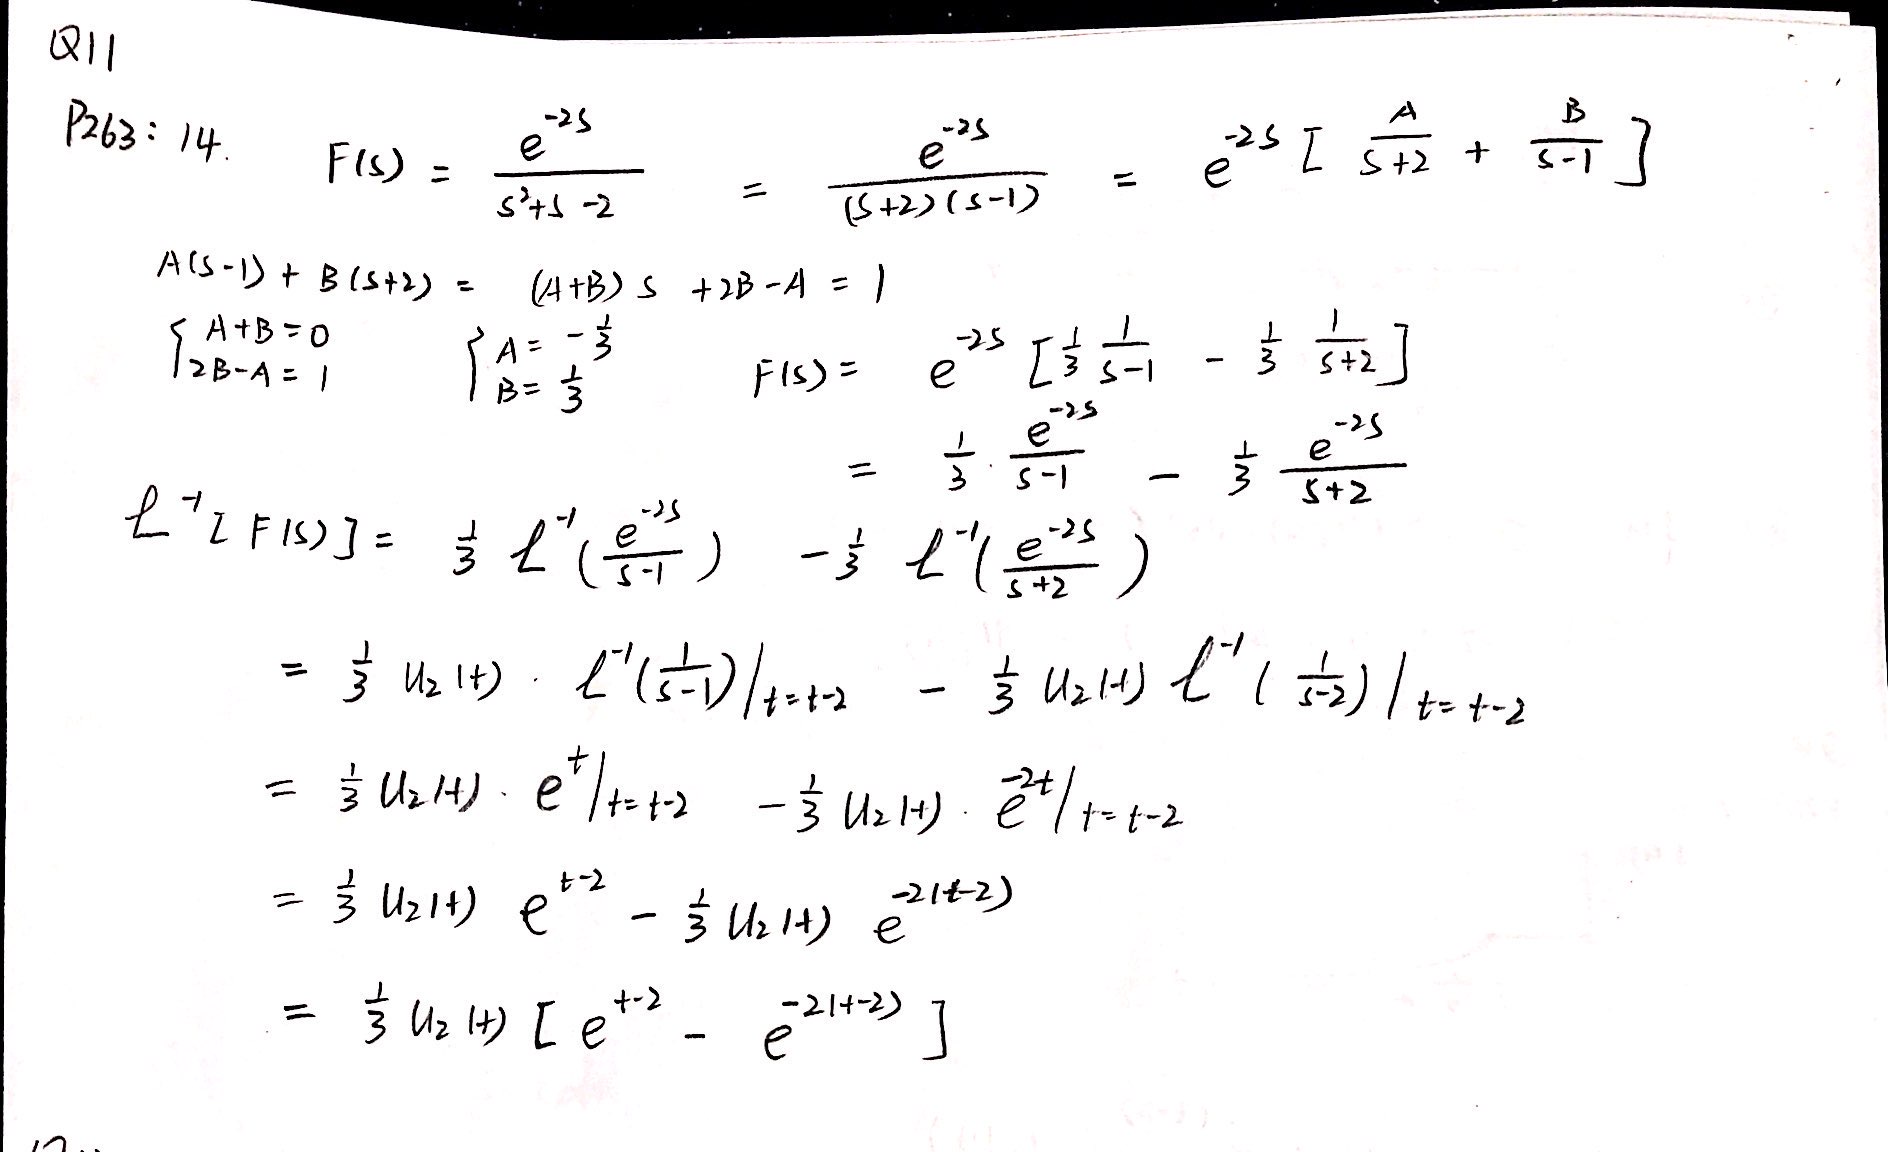 Q11
P263: 14. F(s) = e^{-2s} / (s²+s-2) = e^{-2s} / ((s+2)(s-1)) = e^{-2s} [ A/(s+2) + B/(s-1) ]
A(s-1) + B(s+2) = (A+B)s + 2B-A = 1
{ A+B=0 { A = -1/3
{ 2B-A=1 { B = 1/3
F(s) = e^{-2s} [ 1/3 1/(s-1) - 1/3 1/(s+2) ]
= 1/3 · e^{-2s}/(s-1) - 1/3 e^{-2s}/(s+2)
ℒ^{-1}[F(s)] = 1/3 ℒ^{-1}( e^{-2s}/(s-1) ) - 1/3 ℒ^{-1}( e^{-2s}/(s+2) )
= 1/3 U₂(t) · ℒ^{-1}( 1/(s-1) )|_{t=t-2} - 1/3 U₂(t) ℒ^{-1}( 1/(s-2) )|_{t=t-2}
= 1/3 U₂(t) · e^{t}|_{t=t-2} - 1/3 U₂(t) · e^{-2t}|_{t=t-2}
= 1/3 U₂(t) e^{t-2} - 1/3 U₂(t) e^{-2(t-2)}
= 1/3 U₂(t) [ e^{t-2} - e^{-2(t-2)} ]